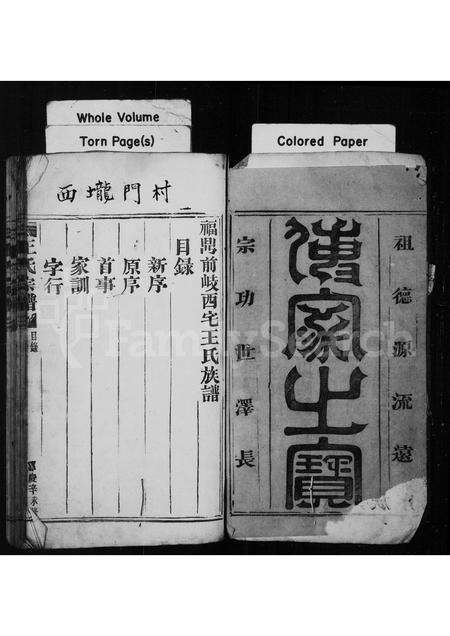 Whole Volume
Torn Page(s)
Colored Paper
祖德源流遠
傳家之寶
宗功世澤長
西壠門村
福鼎前岐西宅王氏族譜
目錄
新序
原序
首事
家訓
字行
王氏宗譜
目錄
FamilySearch